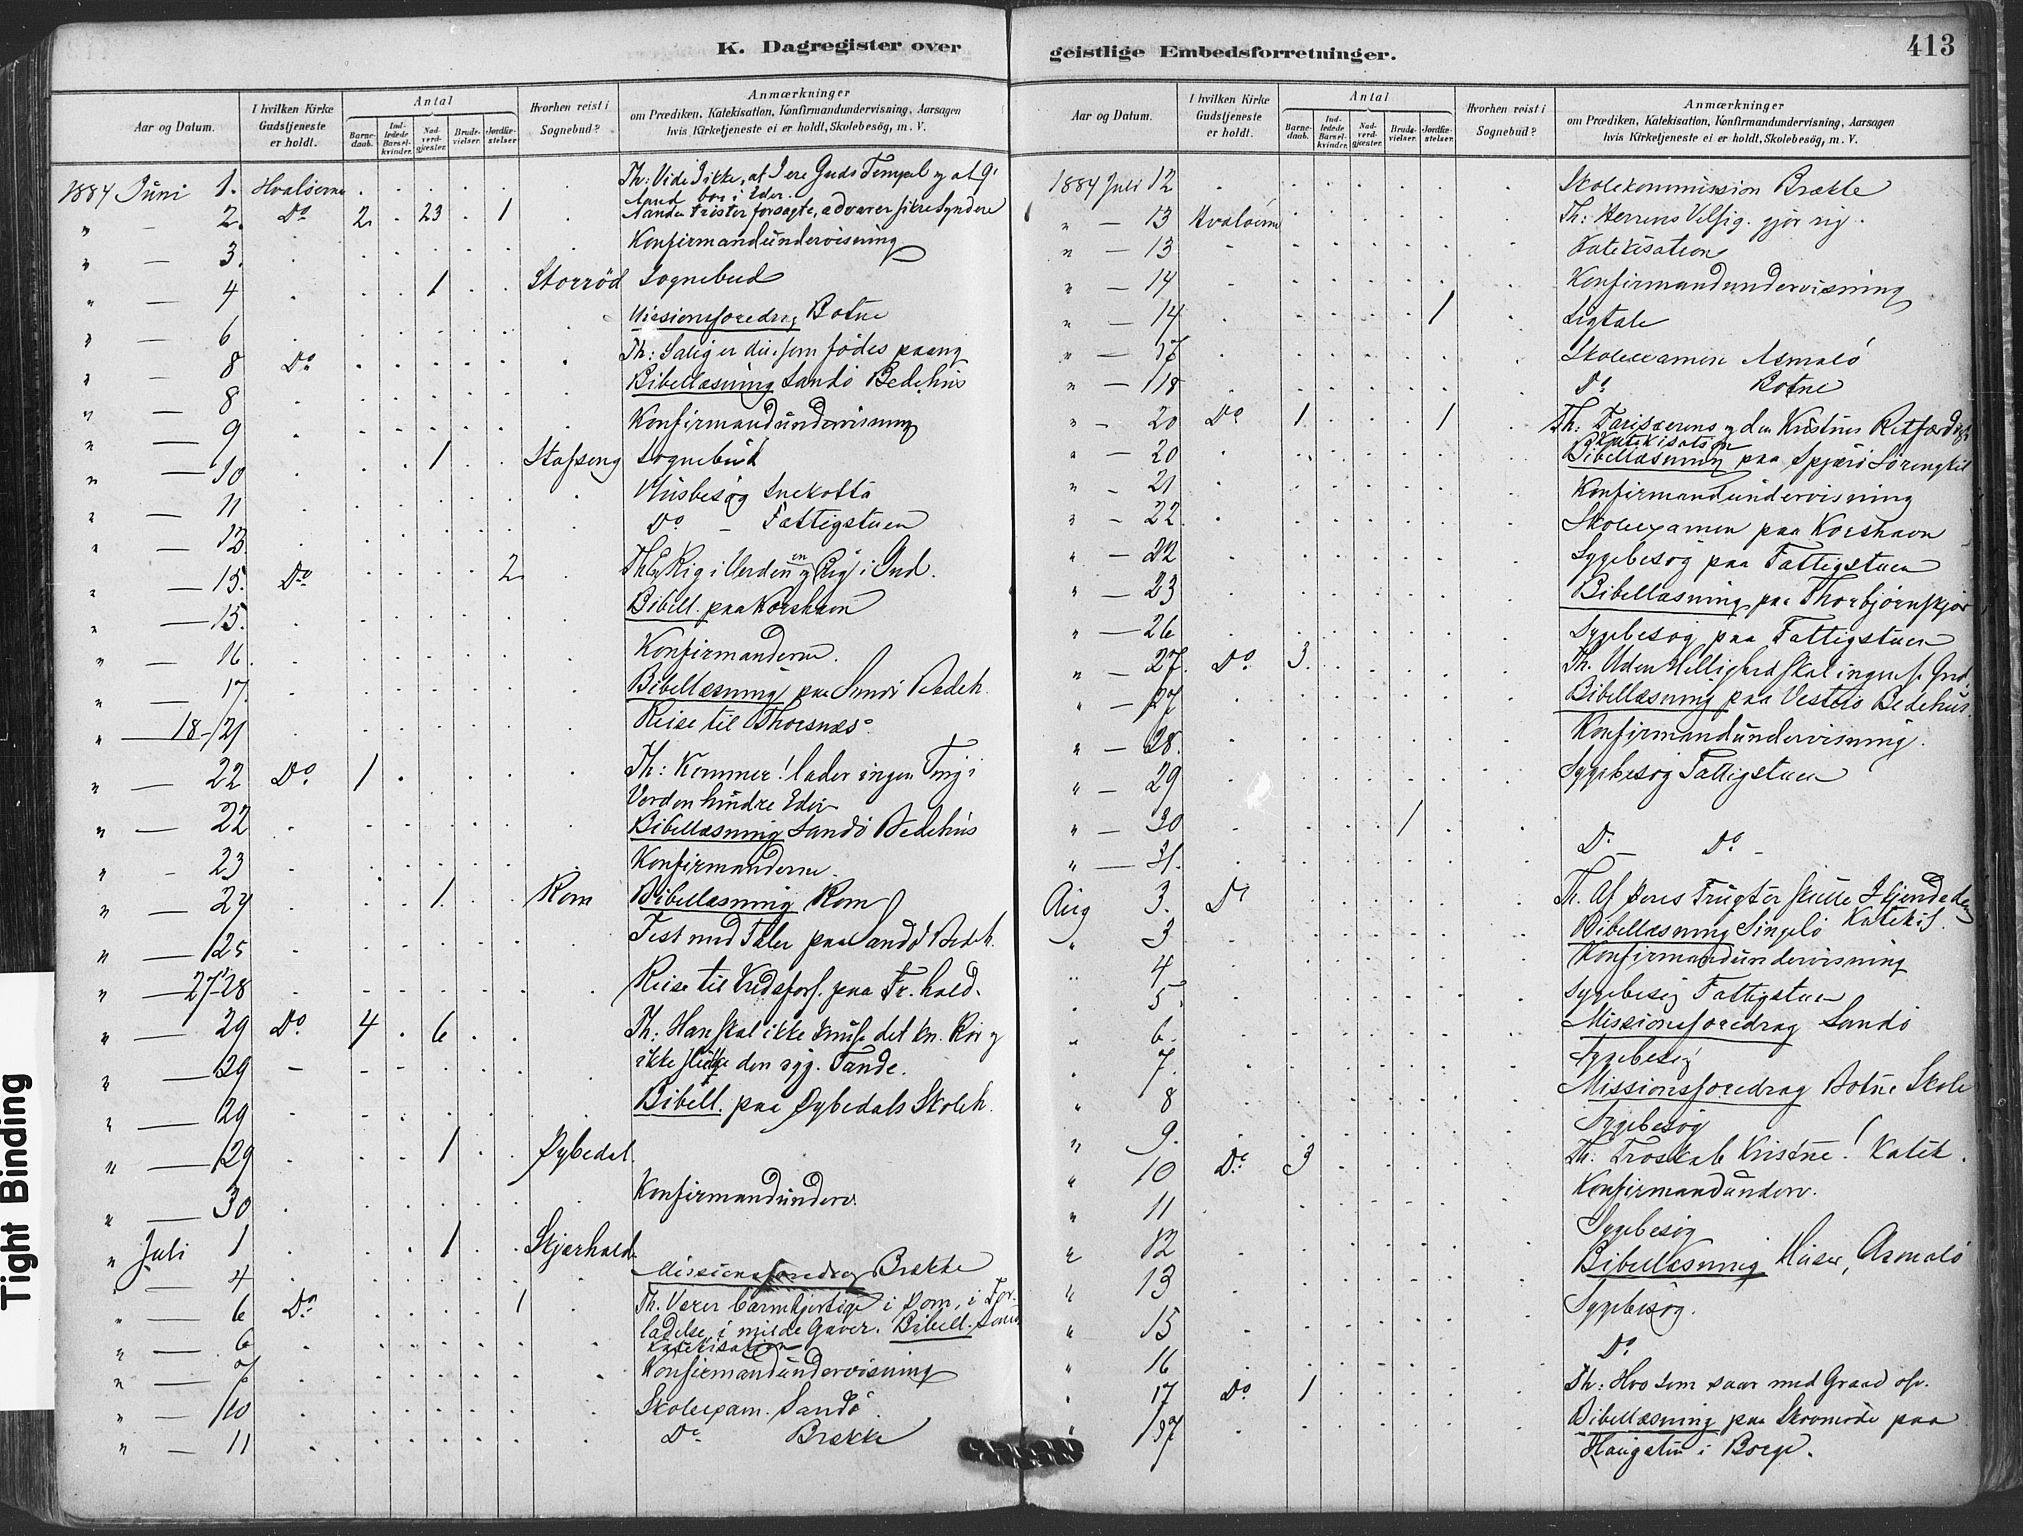 K. Dagregister over
Aar og Datum.
I hvilken Kirke Gudstjeneste er holdt.
Antal
Barne-daab.
Ind-ledede Barsel-kvinder.
Nad-verd-gjæster.
Brude-vielser.
Jordfæ-stelser
Hvorhen reist i Sognebud?
Anmærkninger
om Prædiken, Katekisation, Konfirmandundervisning, Aarsagen
hvis Kirketjeneste ei er holdt, Skolebesög, m. V.
1884 Juni 1. Hvaløerne Th: Vide I ikke, at I ere Guds Tempel og at G.
Aand bor i Eder.
" - 2. Do 2 23 1 Aanden trøster forsagte, advarer sikre Syndere
" - 3. Konfirmandundervisning
" - 4 1 Storrød Sognebud
" - 6 Missionsforedrag Botne
" - 8 Do Th: Salig er du, som fødes paany
" - 8 Bibellæsning Sandø Bedehus
" - 9 Konfirmandundervisning
" - 10 1 Stafseng Sognebud
" - 11 Husbesøg
" - 13 Do - Fattigstuen
" - 15. Do 2 Th: Rig i Verden og Rig i Gud.
" - 15. Bibell. paa Korshavn
" - 16 Konfirmanderne.
" - 17. Bibellæsning paa Sandø Bedeh.
" - 18-21 Reise til Thorsnæs.
" - 22 Do 1 Th: Kommer! lader ingen Ting i
Verden hindre Eder
" - 22 Bibellæsning Sandø Bedehus
" - 23 Konfirmanderne.
" - 24 1 Rom Bibellæsning Rom
" - 25 Fest med Taler paa Sandø Bedeh.
" - 27-28 Reise til Kredsforf. paa Fr.hald.
" - 29 Do 4 6 Th: Han skal ikke knuse det kn. Rør og
" - 29 ikke slukke den ryg. Tande.
" - 29 Bibell. paa Dybedals Skoleh.
" - 29 1 Dybedal.
" - 30 Konfirmandunderv.
" Juli 1 1 Skjærhald.
" - 4 Missionsforedrag Brække
" - 6 Do 1 Th. Værer barmhjertige i Dom, i For-
ladelse, i milde Gaver. Bibell. Sandø
" - 6 Katekisation
" - 7 Konfirmandundervisning
" - 10 Skoleexam. Sandø
" - 11 Do Brække
geistlige Embedsforretninger.
413
Aar og Datum.
I hvilken Kirke Gudstjeneste er holdt.
Antal
Barne-daab.
Ind-ledede Barsel-kvinder.
Nad-verd-gjæster.
Brude-vielser.
Jordfæ-stelser.
Hvorhen reist i Sognebud?
Anmærkninger
om Prædiken, Katekisation, Konfirmandundervisning, Aarsagen
hvis Kirketjeneste ei er holdt, Skolebesög, m. V.
1884 Juli 12 Skolekommission Brække
" - 13 Hvaløerne Th: Herrens Velsig. gjør rig.
" - 13 Katekisation
" - 14 Konfirmandundervisning
" - 14 1 Ligtale
" - 17 Skoleexamen Asmalø
" - 18 Do Botne
" - 20 Do 1 1 Th: Farisæerens og den Kristnes Retfærdigh.
Katekisation
" - 20 Bibellæsning paa Spjærø
" - 21 Konfirmandundervisning
" - 22 Skoleexamen paa Korshavn
" - 22 Sygebesøg paa Fattigstuen
" - 23 Bibellæsning paa Thorbjørnskjær
" - 26 Sygebesøg paa Fattigstuen
" - 27 Do 3 Th. Uden Hellighed skal ingen se Gud.
" - 27 Bibellæsning paa Vesterø Bedehus.
" - 28. Konfirmandundervisning.
" - 29 Sygebesøg Fattigstuen
" - 30 1
" - 31. Do - Do -
Aug 3. Do Th. Af deres Frugter skulle I kjende dem
" 3 Bibellæsning Singelø Katekis.
" 4 Konfirmandundervisning
" 5 Sygebesøg Fattigstuen
" 6. Missionsforedrag Sandø
" 7. Sygebesøg
" 8 Missionsforedrag Botne Skole
" 9. Sygebesøg
" 10 Do 3 Th: Troskab Kristne! Katek.
" 11 Konfirmandunderv.
" 12 Sygebesøg
" 13 Bibellæsning Huser, Asmalø
" 15 Sygebesøg.
" 16 Do
" 17 Do 1 Th: Hvo som saar med Graad osv.
" 17 Bibellæsning paa Skovmøde paa
Haugstu i Borge.
Tight Binding